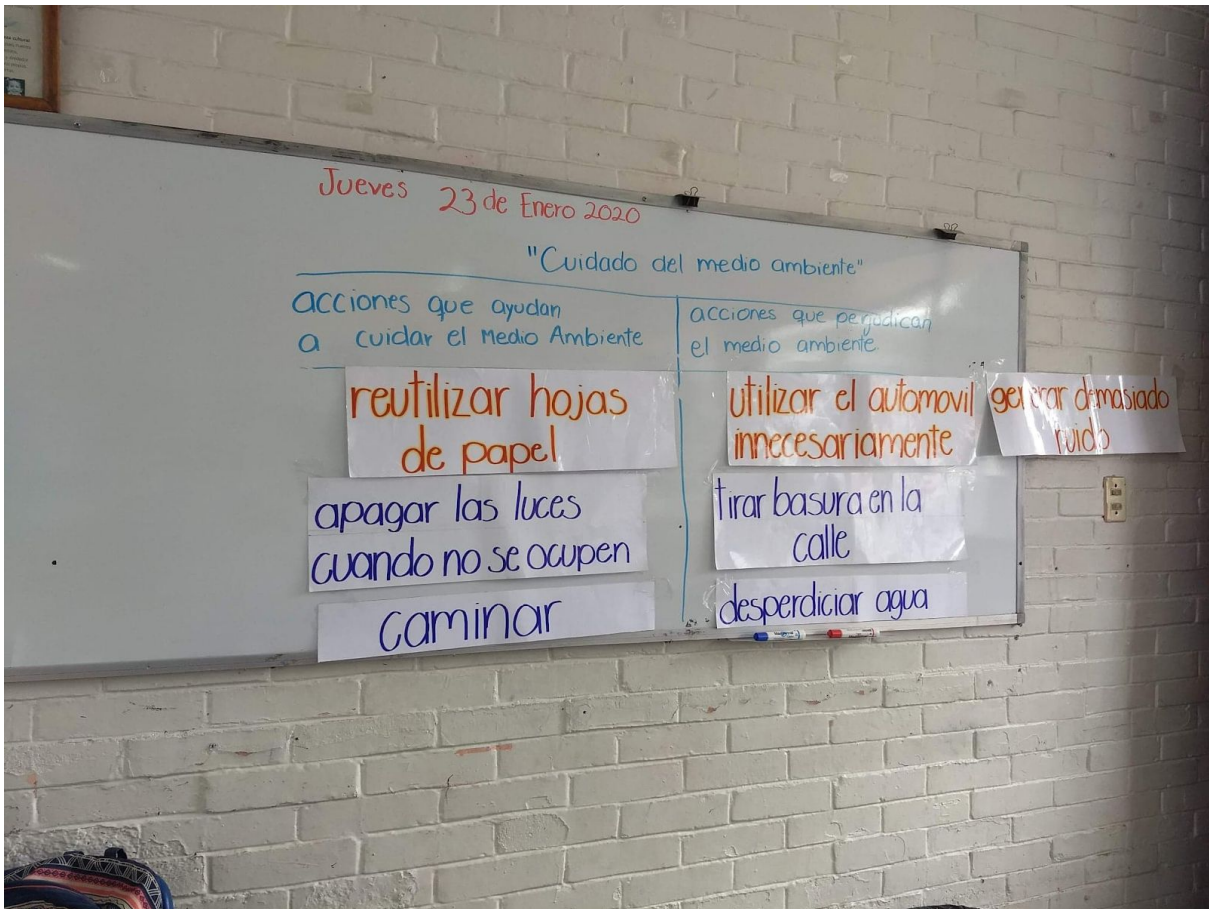 Jueves 23 de Enero 2020
"Cuidado del medio ambiente"
acciones que ayudan
a cuidar el Medio Ambiente
reutilizar hojas
de papel
apagar las luces
cuando no se ocupen
caminar
acciones que pegudican
el medio ambiente.
utilizar el automovil
innecesariamente
generar demasiado
ruido
tirar basura en la
calle
desperdiciar agua